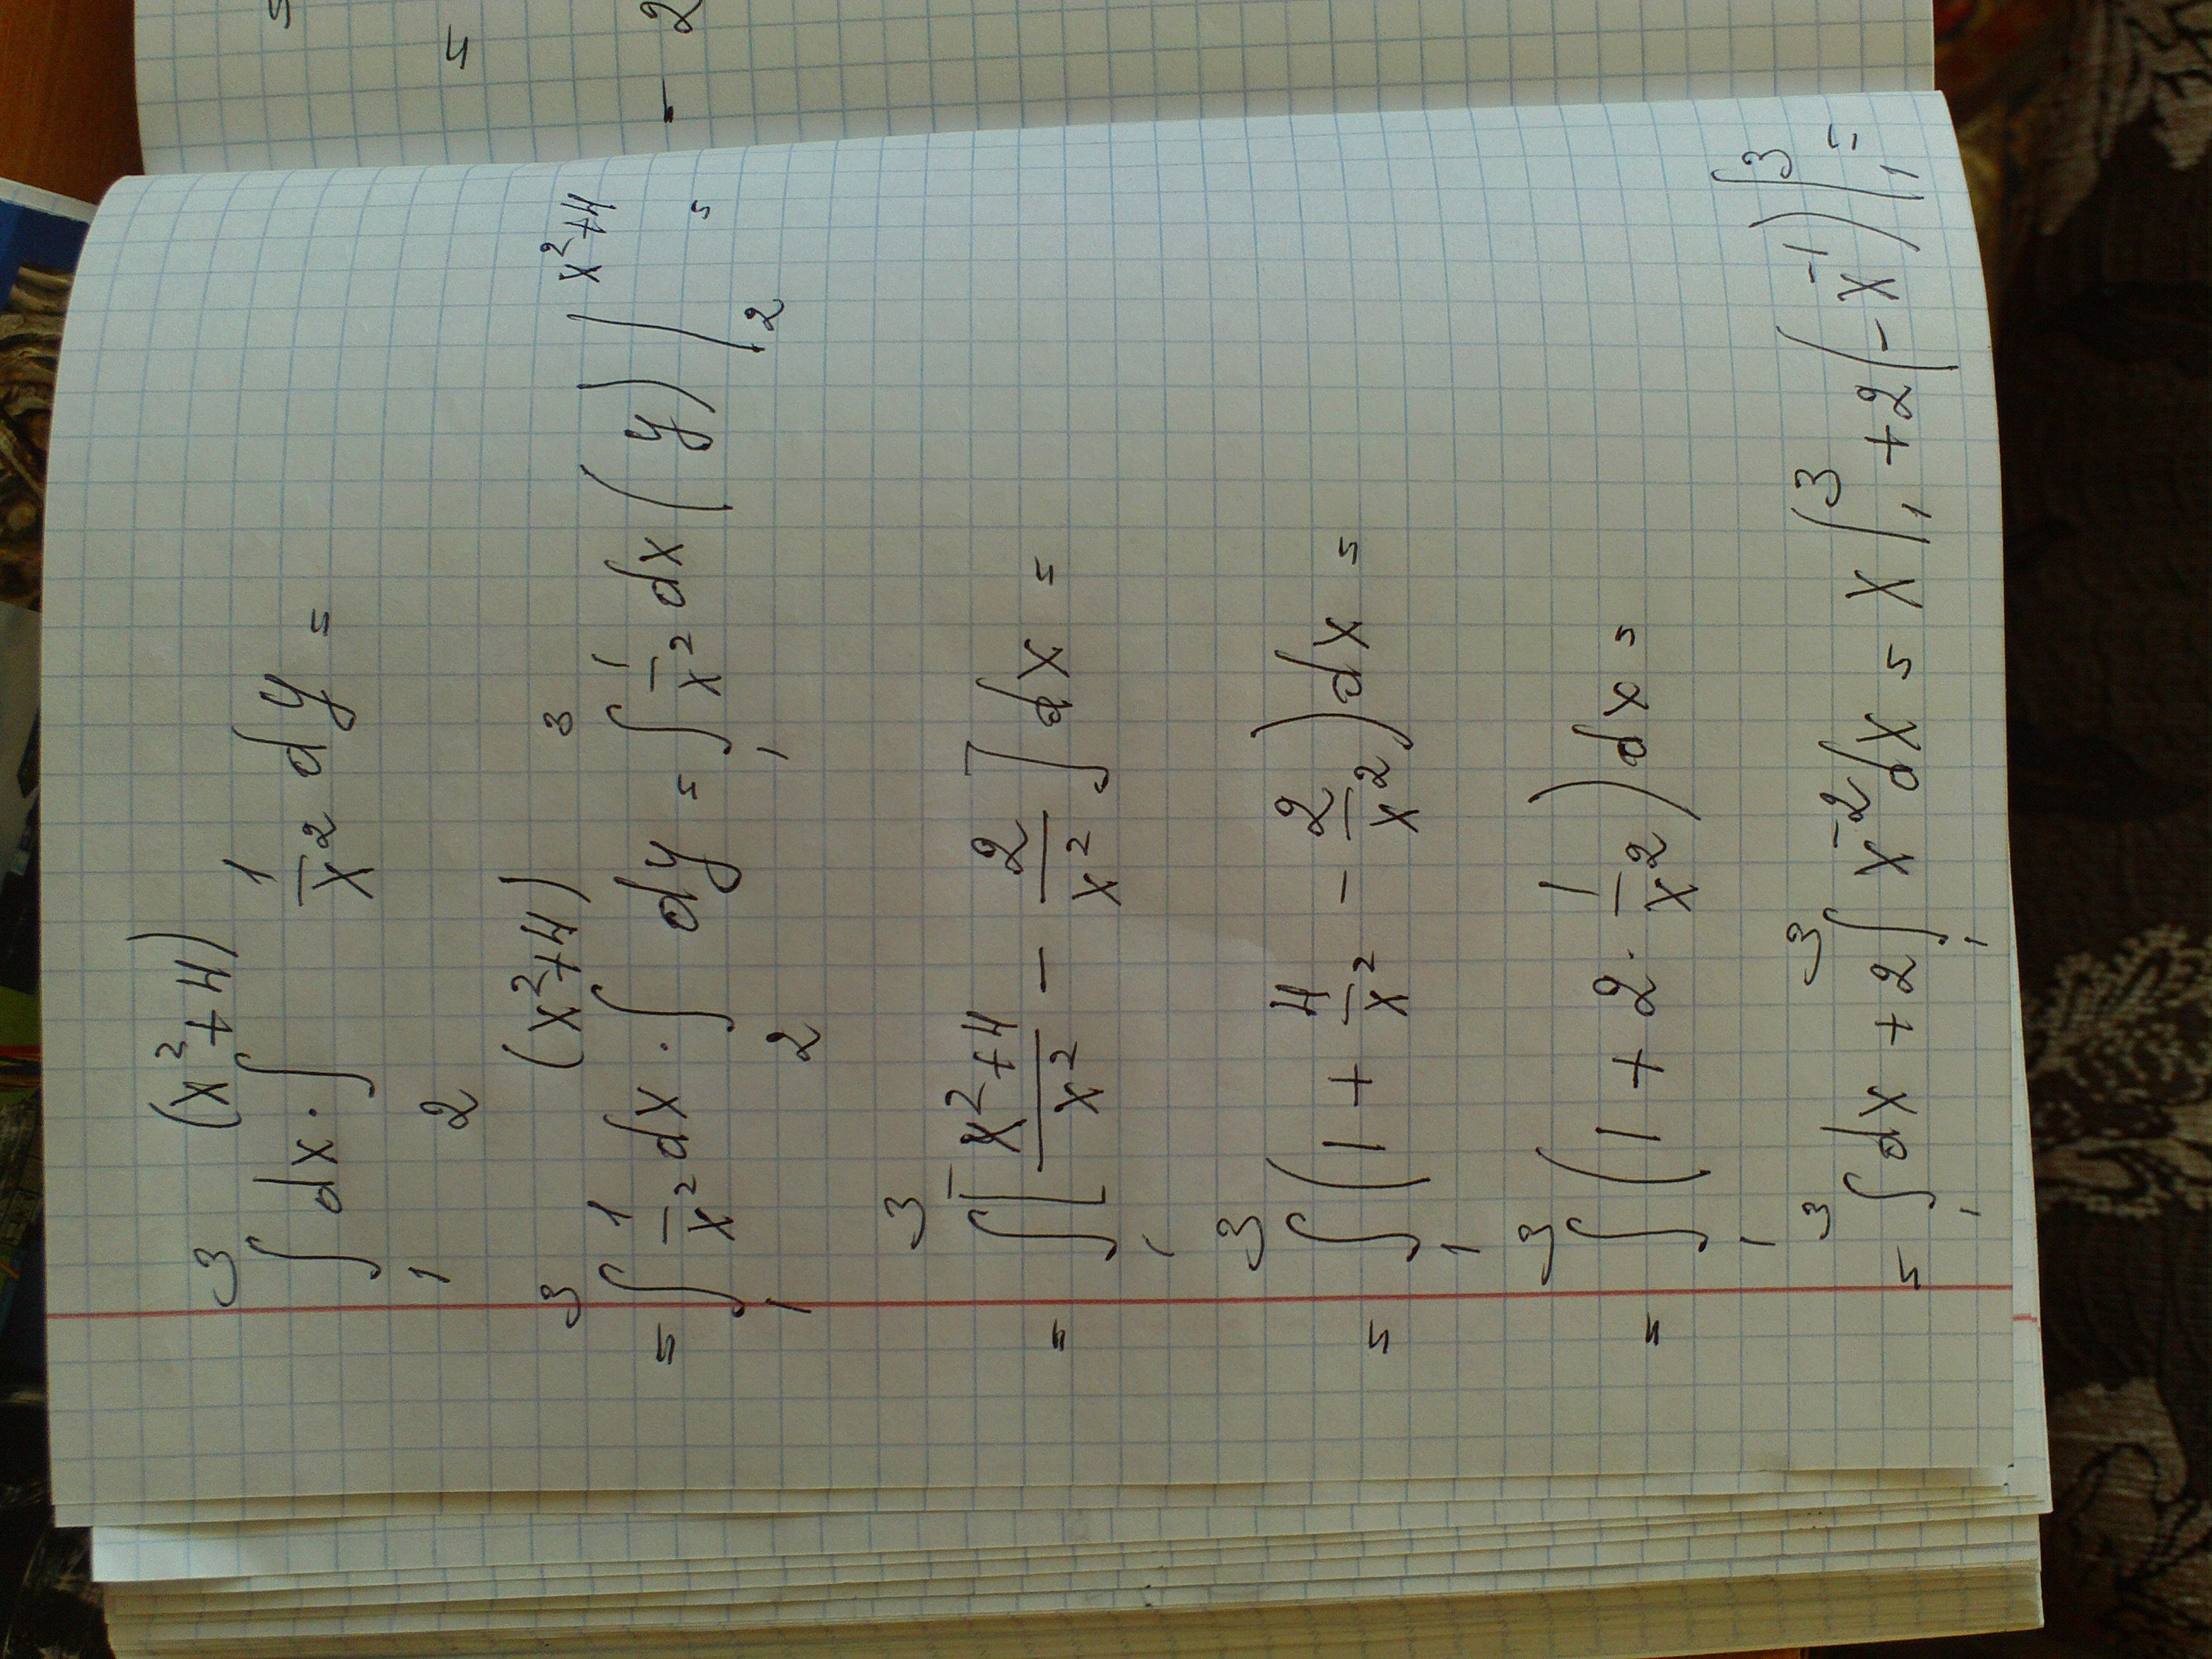 ∫₁³ dx · ∫₂^(x²+4) 1/x² dy =
= ∫₁³ 1/x² dx · ∫₂^(x²+4) dy = ∫₁³ 1/x² dx (y) |₂^(x²+4) =
= ∫₁³ [(x²+4)/x² − 2/x²] dx =
= ∫₁³ (1 + 4/x² − 2/x²) dx =
= ∫₁³ (1 + 2 · 1/x²) dx =
= ∫₁³ dx + 2 ∫₁³ x⁻² dx = x |₁³ + 2(−x⁻¹) |₁³ =
=
=
- 2